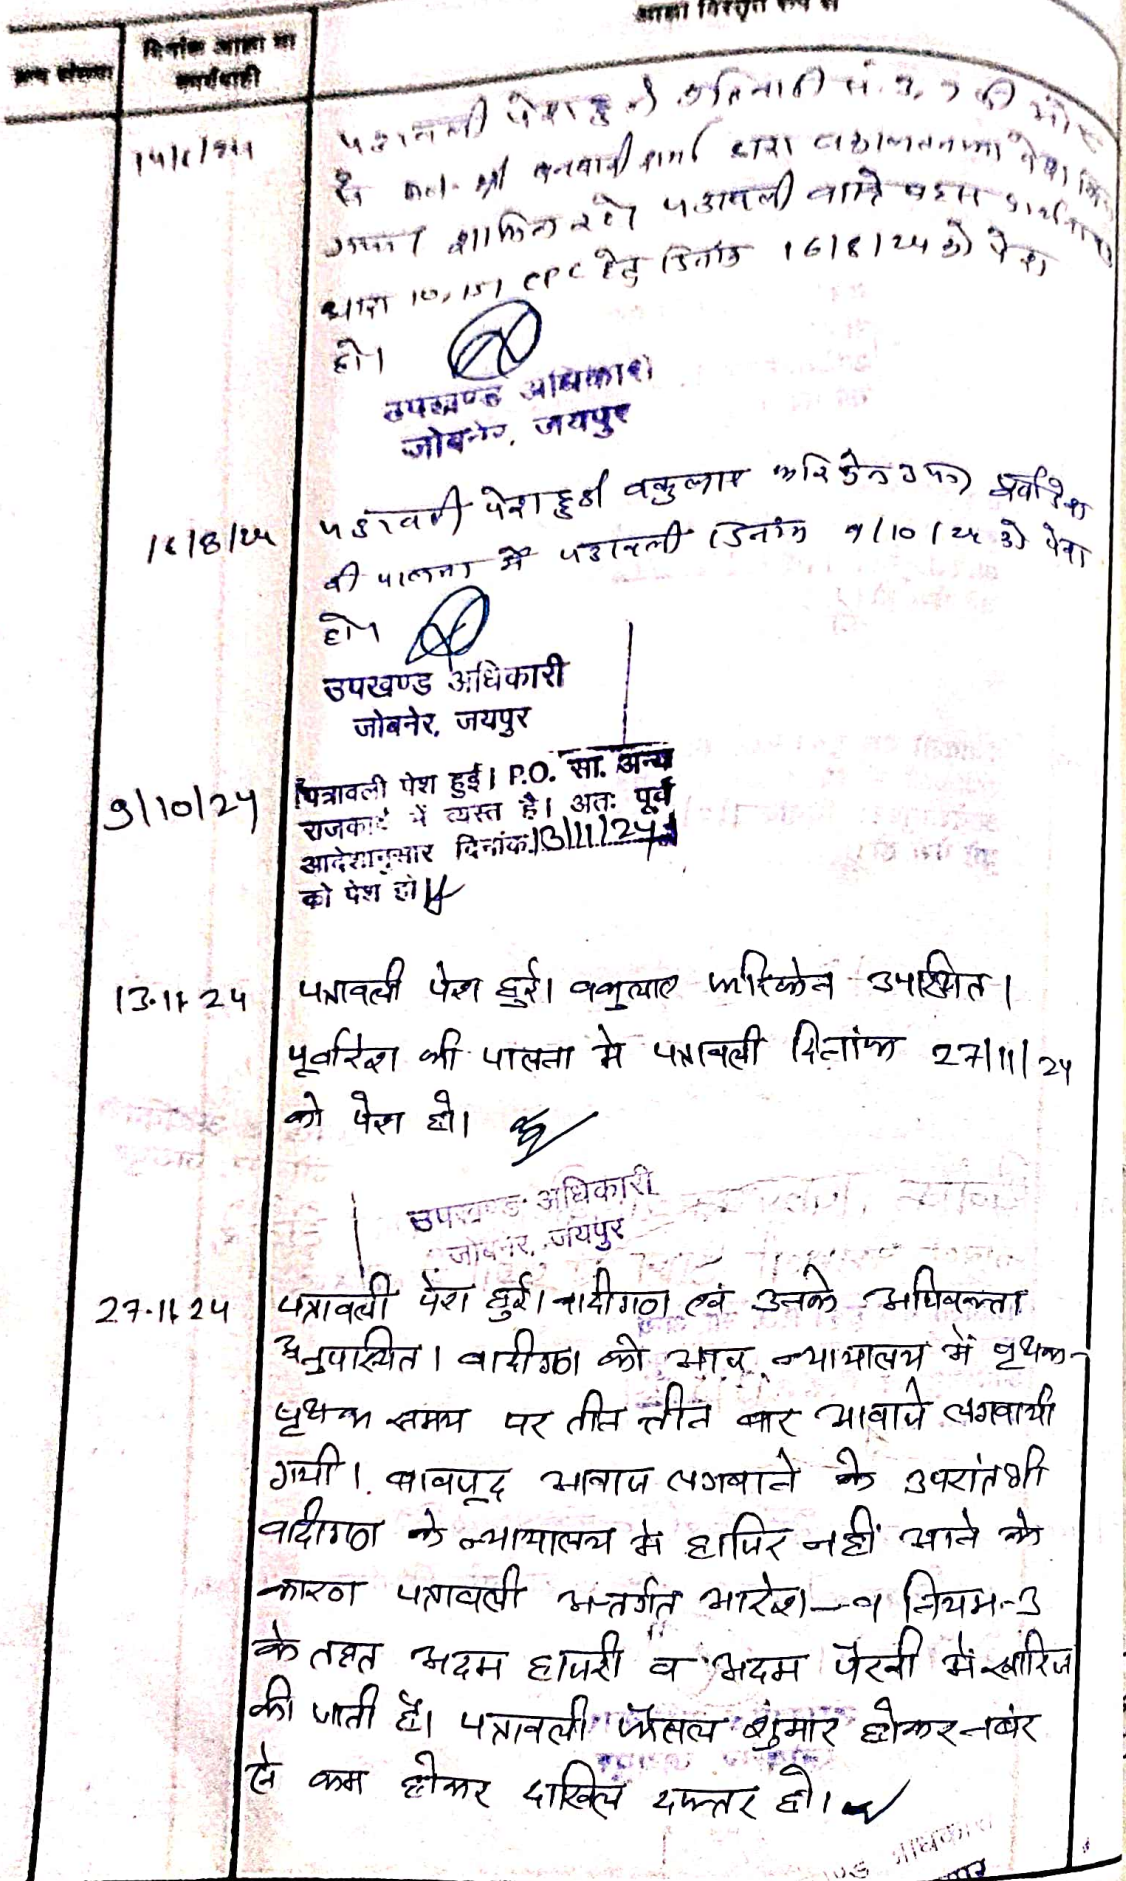 आज्ञा विस्तृत रूप से
दिनांक आज्ञा या
कार्यवाही
पत्रावली पेश हुई प्रतिवादी सं. 3, 7 की ओर
से श्री बनवारी शर्मा द्वारा वकालतनामा पेश किया
गया। शामिल रहे। पत्रावली वास्ते बहस
धारा 10, 151 CPC हेतु दिनांक 16/8/24 को पेश
हो।
उपखण्ड अधिकारी
जोबनेर, जयपुर
16/8/24
पत्रावली पेश हुई वकुलाय फरिकेन उप० पूर्वादेश
की पालना में पत्रावली दिनांक 9/10/24 को पेश
हो।
उपखण्ड अधिकारी
जोबनेर, जयपुर
9/10/24
पत्रावली पेश हुई। P.O. सा. अन्य
राजकार्य में व्यस्त है। अतः पूर्व
आदेशानुसार दिनांक 13/11/24
को पेश हो।
13.11.24
पत्रावली पेश हुई। वकुलाए फरिकेन उपस्थित।
पूर्वादेश की पालना मे पत्रावली दिनांक 27/11/24
को पेश हो।
उपखण्ड अधिकारी
जोबनेर, जयपुर
27.11.24
पत्रावली पेश हुई। वादीगण एवं उनके अधिवक्ता
अनुपस्थित। वादीगण को आज न्यायालय में पृथक-
पृथक समय पर तीन तीन बार आवाजे लगवायी
गयी। बावजूद आवाज लगवाने के उपरांत भी
वादीगण के न्यायालय मे हाजिर नहीं आने के
कारण पत्रावली अन्तर्गत आदेश-9 नियम-3
के तहत अदम हाजरी व अदम पैरवी में खारिज
की जाती है। पत्रावली फैसल शुमार होकर नबंर
से कम होकर दाखिल दफ्तर हो।